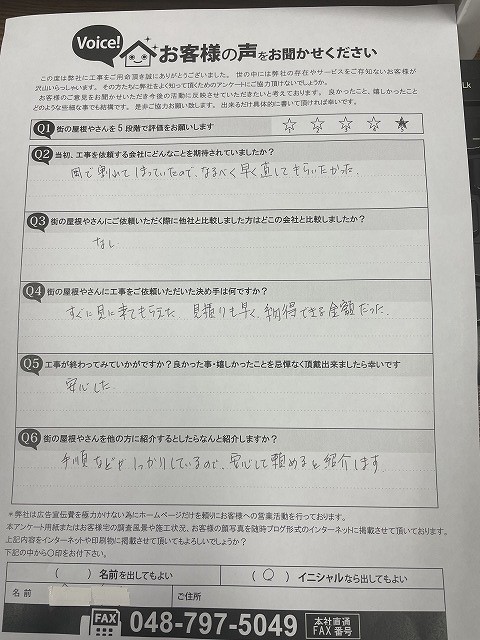 Voice! お客様の声をお聞かせください
この度は弊社に工事をご用命頂き誠にありがとうございました。世の中には弊社の存在やサービスをご存知ないお客様が
沢山いらっしゃいます。その方たちに弊社をよく知って頂くためのアンケートにご協力頂けないでしょうか。
お客様のご意見をお聞かせいただき今後の活動に反映させていただきたいと考えております。良かったこと、嬉しかったこと
どのような些細な事でも結構です。是非ご協力お願い致します。出来るだけ具体的に書いて頂ければ幸いです。
Q1 街の屋根やさんを5段階で評価をお願いします ☆ ☆ ☆ ☆ ★
Q2 当初、工事を依頼する会社にどんなことを期待されていましたか?
雨で割れてしまっていたので、なるべく早く直してもらいたかった。
Q3 街の屋根やさんにご依頼いただく際に他社と比較しました方はどこの会社と比較しましたか?
なし
Q4 街の屋根やさんに工事をご依頼いただいた決め手は何ですか?
すぐに見に来てもらえた 見積りも早く、納得できる金額だった.
Q5 工事が終わってみていかがですか?良かった事・嬉しかったことを忌憚なく頂戴出来ましたら幸いです
安心した
Q6 街の屋根やさんを他の方に紹介するとしたらなんと紹介しますか?
手順などがしっかりしているので、安心して頼めると紹介します.
*弊社は広告宣伝費を極力かけない為にホームページだけを頼りにお客様への営業活動を行っております。
本アンケート用紙またはお客様宅の調査風景や施工状況、お客様の顔写真を随時ブログ形式のインターネットに掲載させて頂いております。
上記内容をインターネットや印刷物に掲載させて頂いてもよろしいでしょうか?
下記の中から〇印をお付け下さい。
( ) 名前を出してもよい ( ○ ) イニシャルなら出してもよい
名前 ご住所
FAX 048-797-5049 本社直通 FAX番号